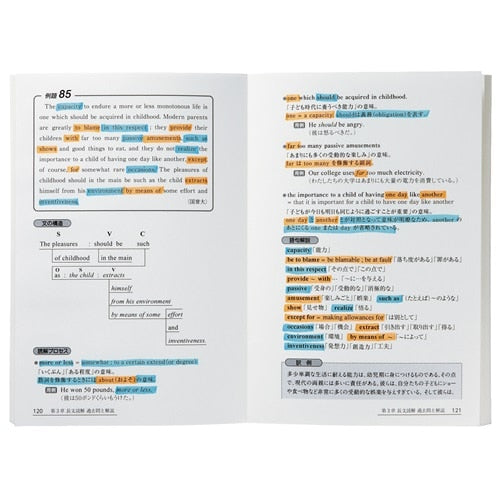 例題 85
The capacity to endure a more or less monotonous life is
one which should be acquired in childhood. Modern parents
are greatly to blame in this respect; they provide their
children with far too many passive amusements, such as
shows and good things to eat, and they do not realize the
importance to a child of having one day like another, except
of course, for somewhat rare occasions. The pleasures of
childhood should in the main be such as the child extracts
himself from his environment by means of some effort and
inventiveness.
(国督大)
文の構造
S V C
The pleasures : should be such
of childhood in the main
O S V
as : the child : extracts
himself
from his environment
by means of some effort
and
inventiveness.
読解プロセス
more or less = somewhat; to a certain extent (or degree)
「いくぶん」「ある程度」の意味。
数詞を修飾するときには about (およそ) の意味。
用例 He won 50 pounds, more or less.
(彼は50ポンドくらいもうけた。)
120
one which should be acquired in childhood.
「子ども時代に養うべき能力」の意味。
one = a capacity should は義務(obligation)を表す。
用例 He should be angry.
(彼は怒るべきだ。)
far too many passive amusements
「あまりにも多くの受動的な楽しみ」の意味。
far は too many を修飾する副詞。
用例 Our college uses far too much electricity.
(わたしたちの大学はあまりにも大量の電気を消費している。)
the importance to a child of having one day like another
= that it is important for a child to have one day like another
「子どもが今日も明日も同じように過ごすことが重要」の意味。
one day と another とが対照となって意味が明瞭なため、another の
あとになくなる one または day が省略されている。
語句解説
capacity「能力」
be to blame = be blamable ; be at fault「落ち度がある」「罪がある」
in this respect「その点で」「この点で」
provide ~ with …「~に…を与える」
passive「受身の」「受動的な」「消極的な」
amusement「楽しみごと」「娯楽」 such as「(たとえば)~のような」
show「見せ物」 realize「悟る」
except for = making allowances for「は別として」
occasions「場合」「機会」 extract「引き出す」「取り出す」「得る」
environment「環境」 by means of ~「~によって」
inventiveness「発想力」「創造力」「工夫」
訳例
多少単調な生活に耐える能力は、幼児期に身につけるものである。その点
で、現代の両親には多いに責任がある。彼らは、自分たちの子どもにショー
や食べ物など非常に多くの受動的な娯楽を与えすぎている。そして彼らは、
第3章 長文読解 過去問と解説 121